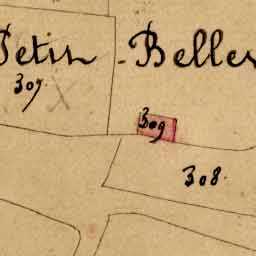 Petit - Belle
307
309
308.